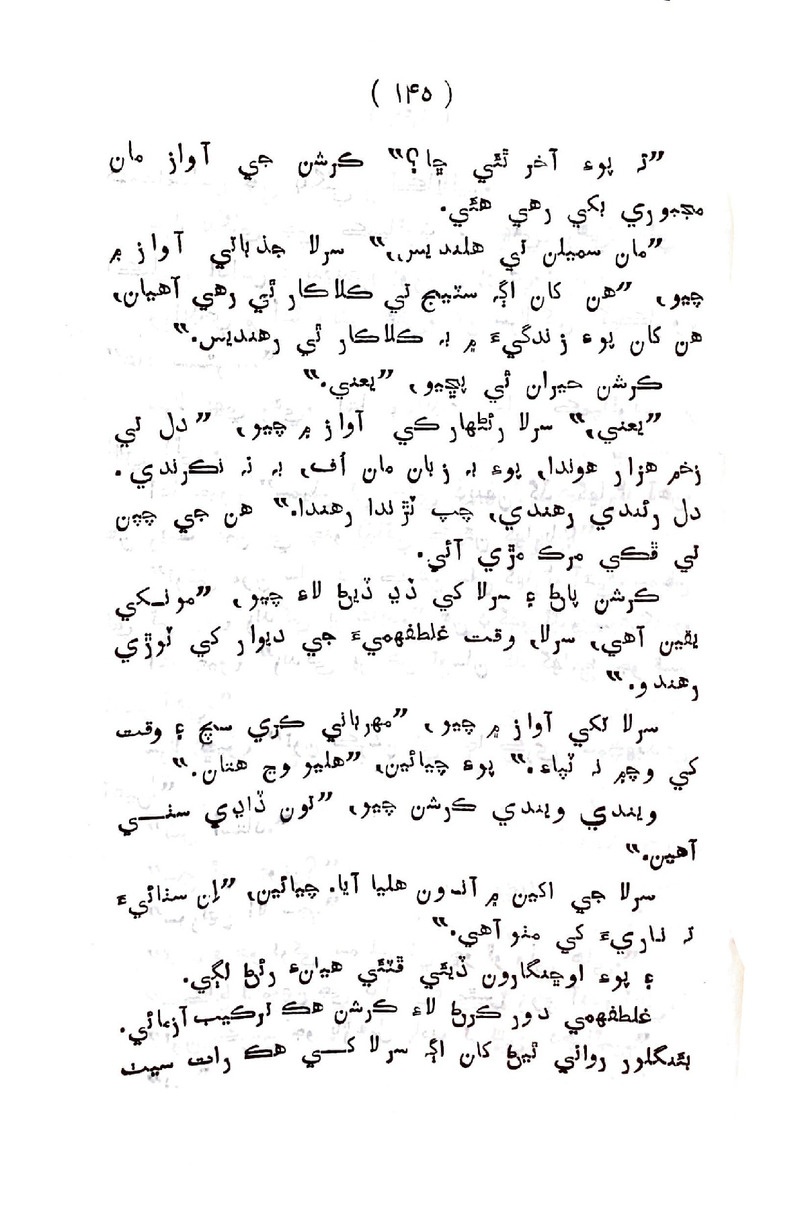 ( ۱۴۵ )
”تہ پوءِ آخر ٿئي ڇا؟“ ڪرشن جي آواز مان
مجبوري بکي رهي هئي.
”مان سميلن تي هلنديس،،“ سرلا جذباتي آواز ۾
چيو، ”هن کان اڳہ سٽيج تي ڪلاڪار ٿي رهي آهيان،
هن کان پوءِ زندگيءَ ۾ بہ ڪلاڪار ٿي رهنديس.“
ڪرشن حيران ٿي پڇيو، ”يعني.“
”يعني،“ سرلا رئڻهارڪي آواز ۾ چيو، ”دل تي
زخم هزار هوندا، پوءِ بہ زبان مان اُف، بہ نہ نڪرندي.
دل رئندي رهندي، چپ ٽڙندا رهندا.“ هن جي چپن
تي ڦڪي مرڪ مڙي آئي.
ڪرشن پاڻ ۽ سرلا کي ڏڍ ڏيڻ لاءِ چيو، ”مونکي
يقين آهي، سرلا، وقت غلطفهميءَ جي ديوار کي ٽوڙي
رهندو.“
سرلا تکي آواز ۾ چيو، ”مهرباني ڪري سچ ۽ وقت
کي وچ۾ نہ ٽپاءِ.“ پوءِ چيائين، ”هليو وڃ هتان.“
ويندي ويندي ڪرشن چيو، ”تون ڏاڍي سٺي
آهين.“
سرلا جي اکين ۾ آنسون هليا آيا. چيائين، ”اِن سٺائيءَ
تہ ناريءَ کي مٺو آهي.“
۽ پوءِ اوڇنگارون ڏيئي ڦٽئي هيانءَ رئڻ لڳي.
غلطفهمي دور ڪرڻ لاءِ ڪرشن هڪ ترڪيب آزمائي.
بئنگلور رواني ٿيڻ کان اڳہ سرلا کي هڪ رات سيٽ